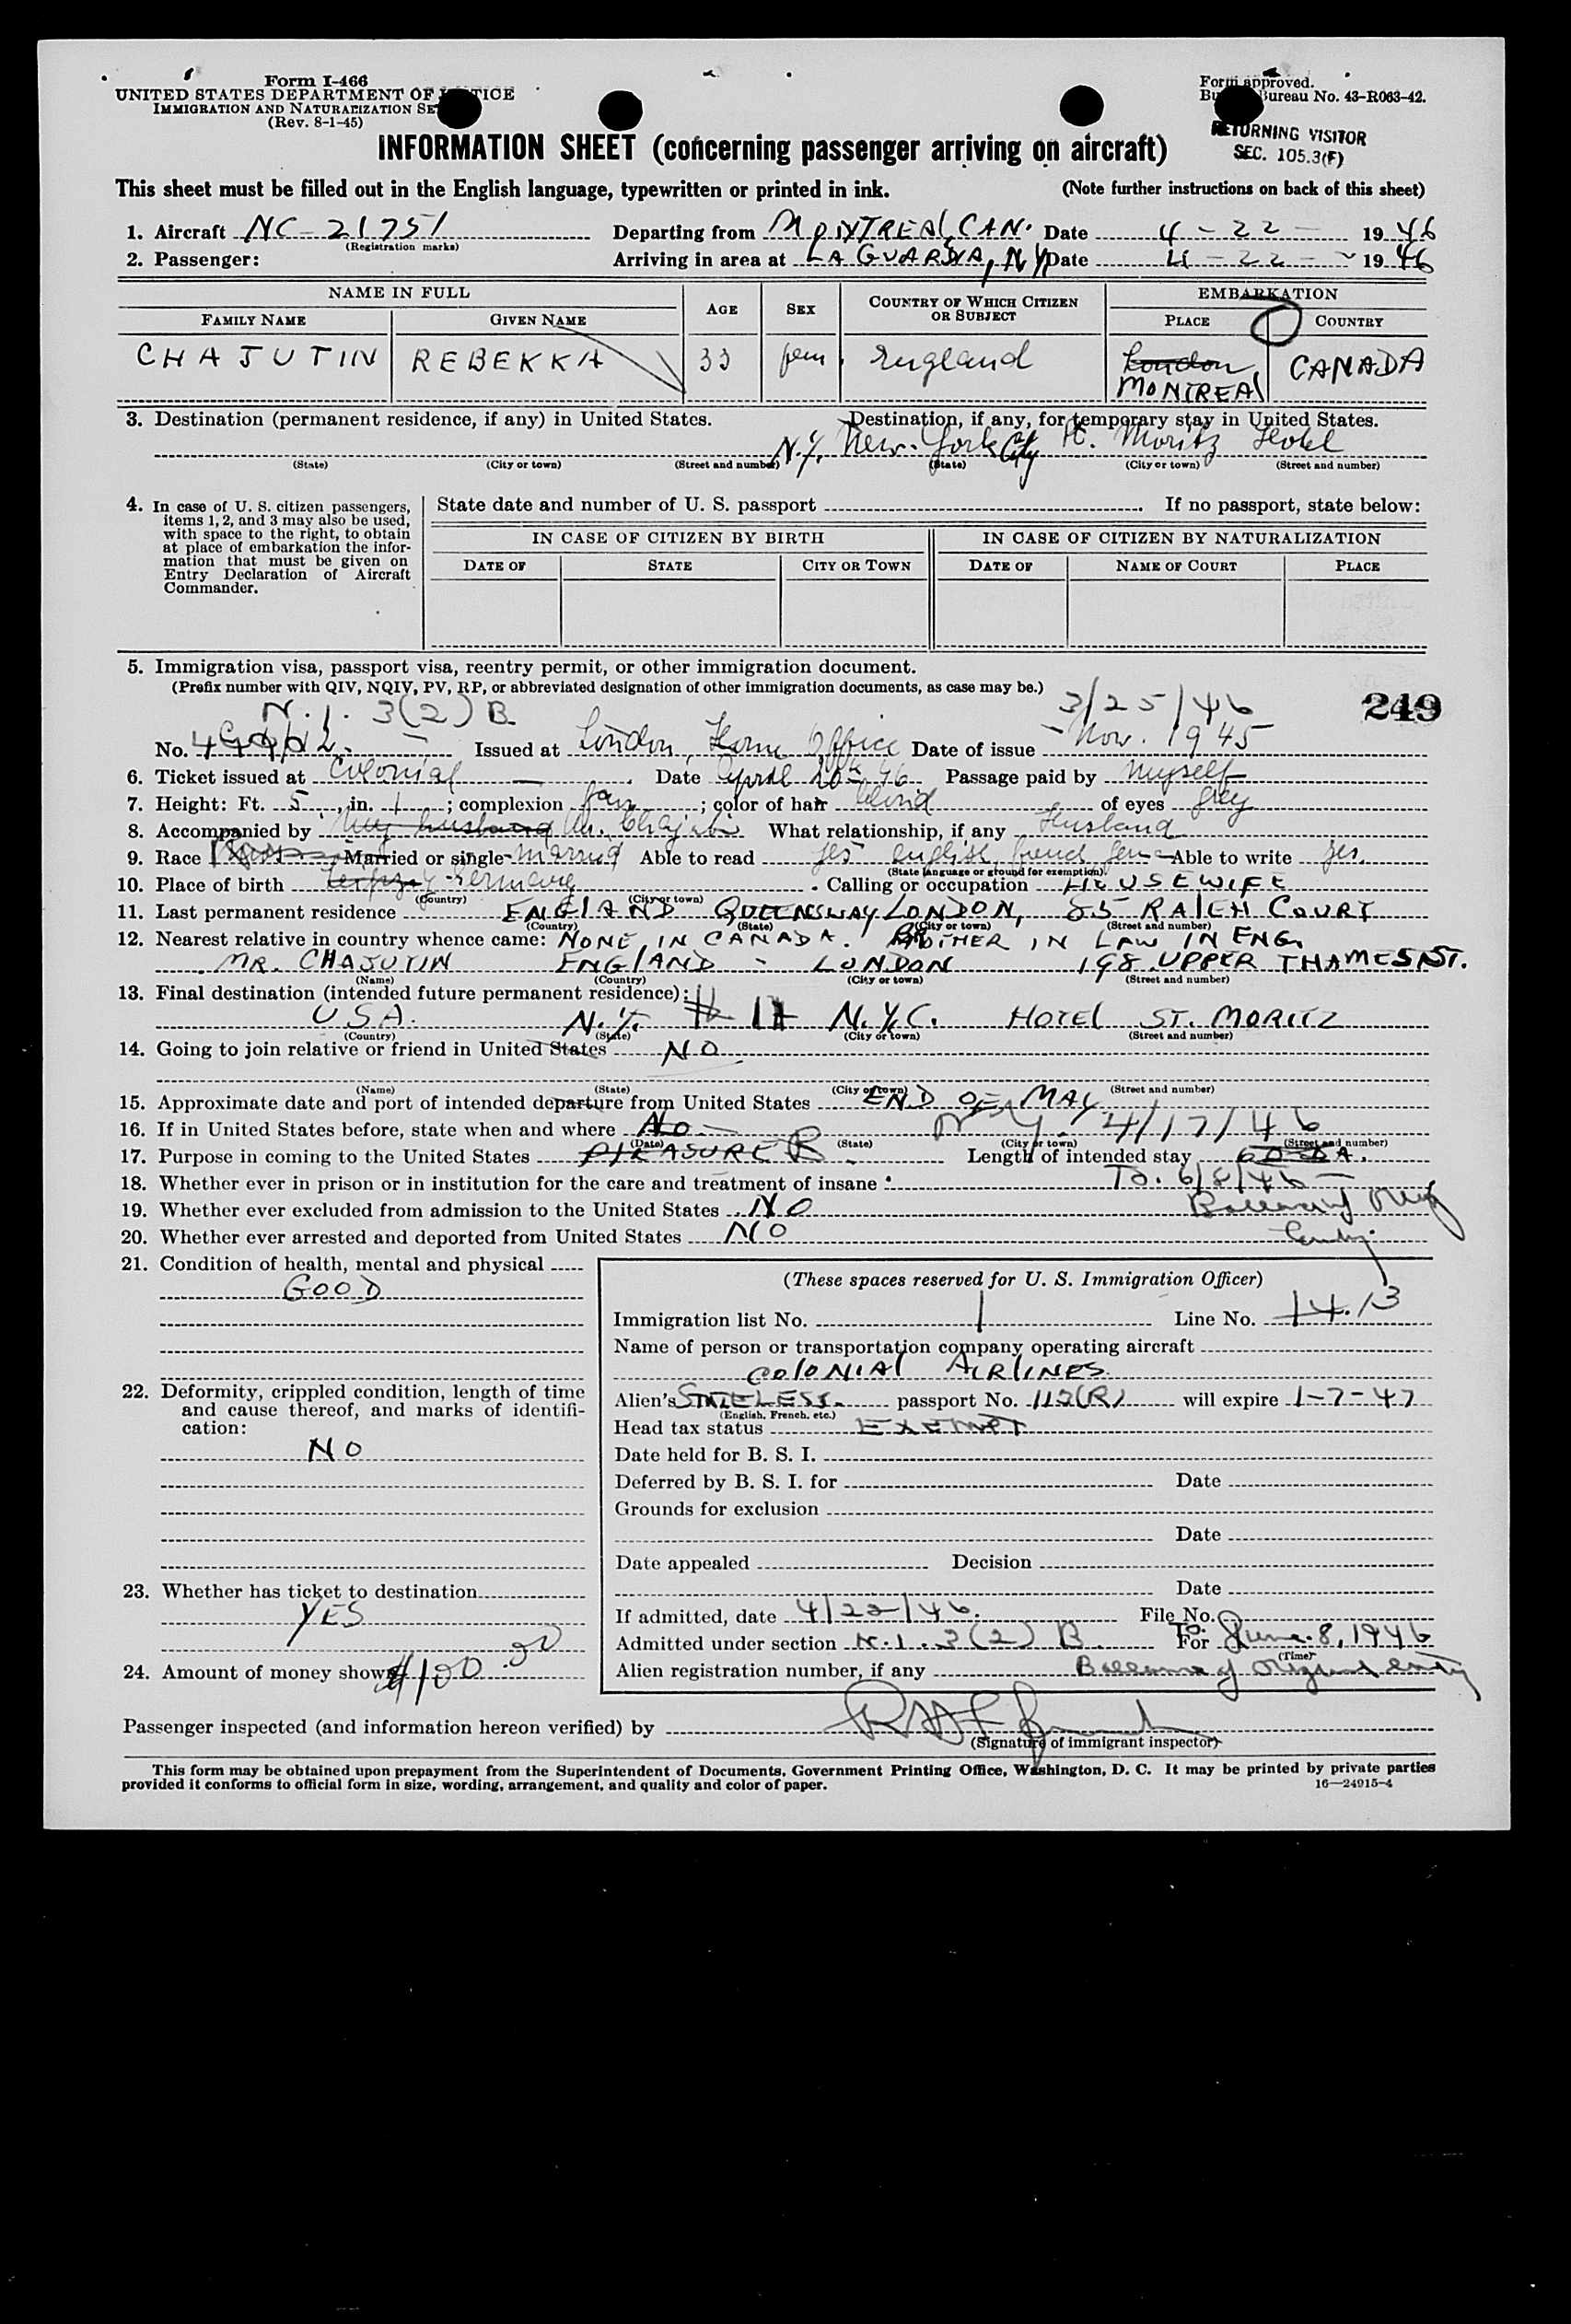 Form I-466
UNITED STATES DEPARTMENT OF JUSTICE
IMMIGRATION AND NATURALIZATION SE
(Rev. 8-1-45)
Form approved.
Bu Bureau No. 43-R063-42.
RETURNING VISITOR
SEC. 105.3(F)
INFORMATION SHEET (concerning passenger arriving on aircraft)
This sheet must be filled out in the English language, typewritten or printed in ink. (Note further instructions on back of this sheet)
1. Aircraft NC-21751 Departing from MONTREAL, CAN. Date 4-22- 1946
(Registration marks)
2. Passenger: Arriving in area at LA GUARDIA, NY Date 4-22- 1946
NAME IN FULL AGE SEX COUNTRY OF WHICH CITIZEN OR SUBJECT EMBARKATION
FAMILY NAME GIVEN NAME PLACE COUNTRY
CHAJUTIN REBEKKA 33 fem England London CANADA
MONTREAL
3. Destination (permanent residence, if any) in United States. Destination, if any, for temporary stay in United States.
N.Y. New-York City St. Moritz Hotel
(State) (City or town) (Street and number) (State) (City or town) (Street and number)
4. In case of U. S. citizen passengers, items 1, 2, and 3 may also be used, with space to the right, to obtain at place of embarkation the information that must be given on Entry Declaration of Aircraft Commander.
State date and number of U. S. passport . If no passport, state below:
IN CASE OF CITIZEN BY BIRTH IN CASE OF CITIZEN BY NATURALIZATION
DATE OF STATE CITY OR TOWN DATE OF NAME OF COURT PLACE
5. Immigration visa, passport visa, reentry permit, or other immigration document.
(Prefix number with QIV, NQIV, PV, RP, or abbreviated designation of other immigration documents, as case may be.)
N.I. 3(2) B 3/25/46 249
No. Issued at London, Home Office Date of issue Nov. 1945
6. Ticket issued at Colonial Date April 20th 46 Passage paid by Myself
7. Height: Ft. 5, in. 1; complexion fair; color of hair blond of eyes grey
8. Accompanied by My husband Mr. Chajutin What relationship, if any Husband
9. Race Married or single married Able to read yes english, french Able to write yes.
(State language or ground for exemption)
10. Place of birth Leipzig Germany. Calling or occupation HOUSEWIFE
(Country) (City or town)
11. Last permanent residence ENGLAND QUEENSWAY LONDON, 85 RALEH COURT
(Country) (State) (City or town) (Street and number)
12. Nearest relative in country whence came: NONE IN CANADA. BROTHER IN LAW IN ENG.
MR. CHAJUTIN ENGLAND - LONDON 198 UPPER THAMES ST.
(Name) (Country) (City or town) (Street and number)
13. Final destination (intended future permanent residence):
USA. N.Y. N.Y.C. HOTEL ST. MORITZ
(Country) (State) (City or town) (Street and number)
14. Going to join relative or friend in United States NO
(Name) (State) (City or town) (Street and number)
15. Approximate date and port of intended departure from United States END OF MAY
16. If in United States before, state when and where No N.Y. 4/17/46
(Date) (State) (City or town) (Street and number)
17. Purpose in coming to the United States PLEASURE B Length of intended stay
18. Whether ever in prison or in institution for the care and treatment of insane To. 6/8/46
19. Whether ever excluded from admission to the United States NO Balance of Orig
20. Whether ever arrested and deported from United States NO Entry.
21. Condition of health, mental and physical
GOOD
22. Deformity, crippled condition, length of time and cause thereof, and marks of identification:
NO
23. Whether has ticket to destination
YES
24. Amount of money shown $100.00
(These spaces reserved for U. S. Immigration Officer)
Immigration list No. 1 Line No. 14. 13
Name of person or transportation company operating aircraft
COLONIAL AIRLINES.
Alien's STATELESS passport No. 112(R) will expire 1-7-47
(English, French, etc.)
Head tax status EXEMPT
Date held for B. S. I.
Deferred by B. S. I. for Date
Grounds for exclusion
Date
Date appealed Decision
Date
If admitted, date 4/22/46. File No.
Admitted under section N.I. 3(2) B To. For June 8, 1946
(Time)
Alien registration number, if any Balance of Original Entry
Passenger inspected (and information hereon verified) by
(Signature of immigrant inspector)
This form may be obtained upon prepayment from the Superintendent of Documents, Government Printing Office, Washington, D. C. It may be printed by private parties
provided it conforms to official form in size, wording, arrangement, and quality and color of paper. 16—24915-4